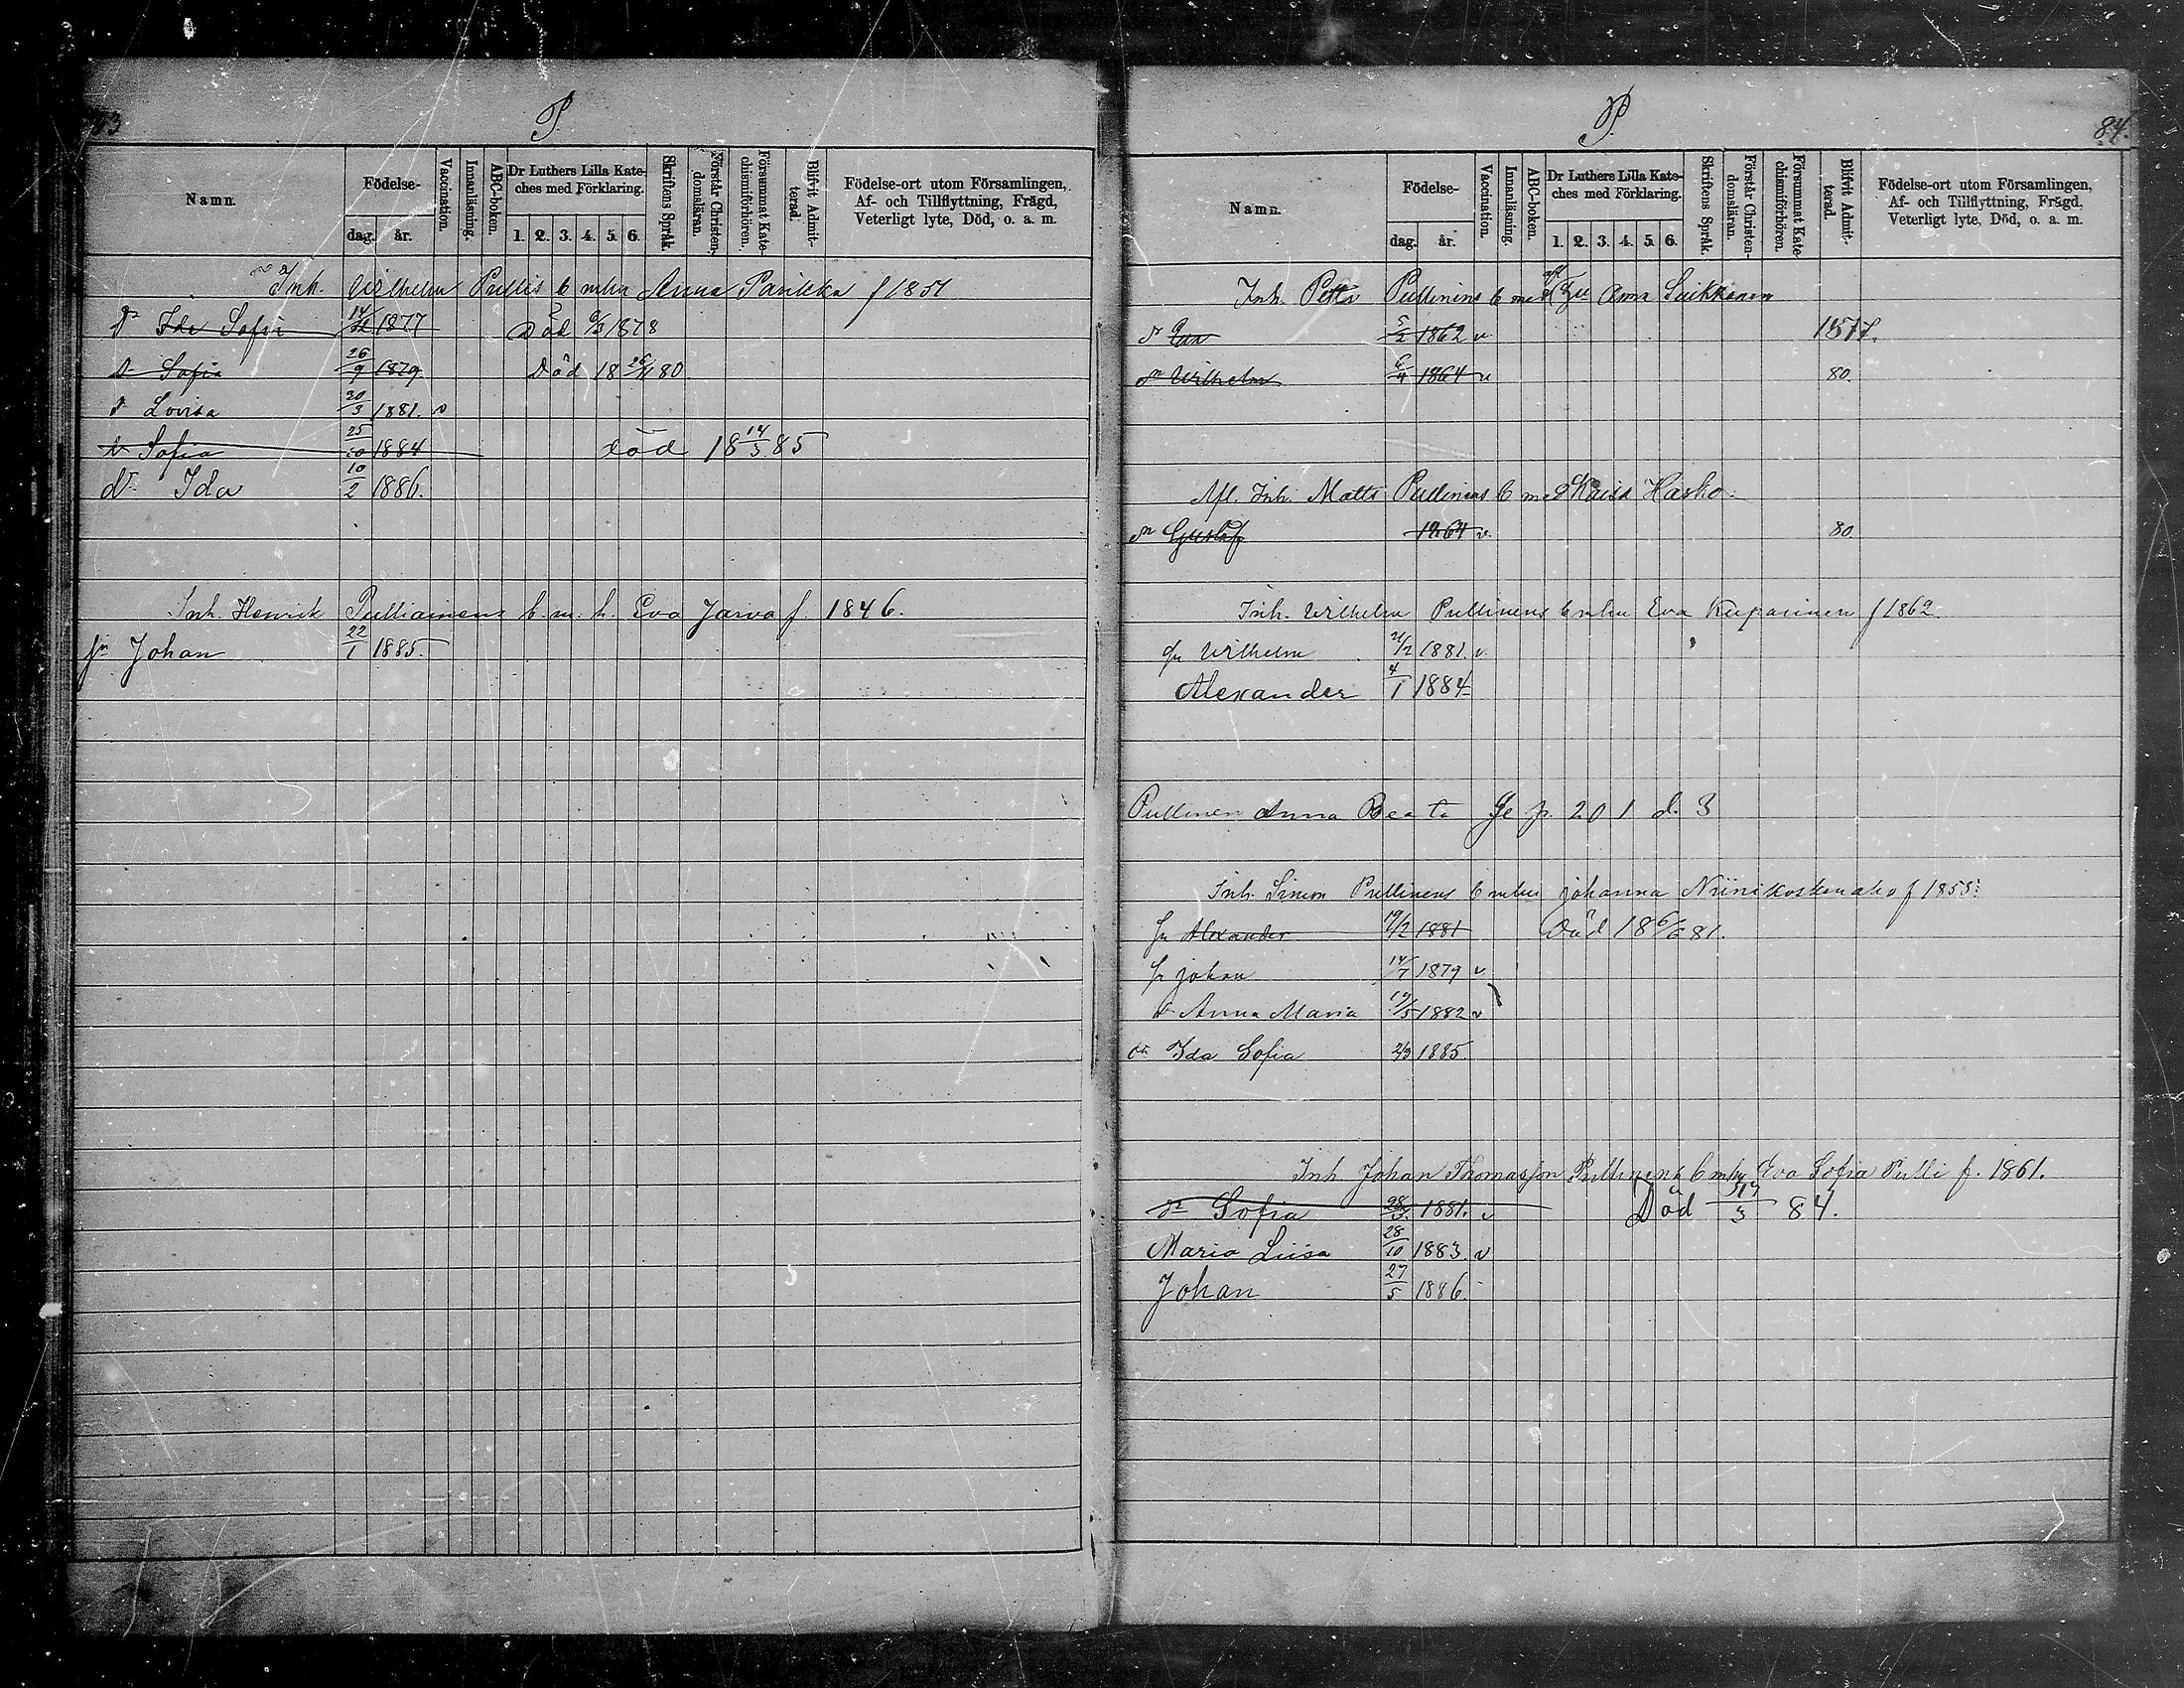 P.
Namn.
Födelse-
dag.
år.
Vaccination.
Innanläsning.
ABC-boken.
Dr Luthers Lilla Kate-
ches med Förklaring.
1. 2. 3. 4. 5. 6.
Skriftens Språk.
Förstår Christen-
domsläran.
Försummat Kate-
chismiförhören.
Blifvit Admit-
terad.
Födelse-ort utom Församlingen,
Af- och Tillflyttning, Frägd,
Veterligt lyte, Död, o. a. m.
Inh. Wilhelm Pullis b mhu Anna Parikka f 1851
Dr Ida Sofia 1877 Död 1878
Dr Sofia 26/9 1879 Död 18 80
Dr Lovisa 30/3 1881. v
Dr Sofia 25/10 1884 död 18 14/3 85
dr Ida 10/2 1886.
Inh. Henrik Pulliainens b. m. h. Eva Jarva f. 1846.
sn Johan 22/1 1885.
P.
84.
Namn.
Födelse-
dag.
år.
Vaccination.
Innanläsning.
ABC-boken.
Dr Luthers Lilla Kate-
ches med Förklaring.
1. 2. 3. 4. 5. 6.
Skriftens Språk.
Förstår Christen-
domsläran.
Försummat Kate-
chismiförhören.
Blifvit Admit-
terad.
Födelse-ort utom Församlingen,
Af- och Tillflyttning, Frägd,
Veterligt lyte, Död, o. a. m.
Inh. Petter Pullinens b med Anna Suikkanen
5/2 1862 v
sn Wilhelm 1864 v 80.
Afl. Inh. Matts Pullinens b med Kaisa Hasko
sn Gustaf 1864 v. 80.
Inh. Wilhelm Pullinens b mhu Eva Kuparinen f 1862.
sn Wilhelm 21/2 1881. v.
Alexander 4/1 1884
Pullinen Anna Beata Se p. 201 d. 3
Inh. Simon Pullinens b mhu johanna Niinikoskenaho f 1855.
sn Alexander 19/2 1881 Död 18 6/6 81.
sn johan 14/7 1879 v
dr Anna Maria 19/5 1882 v
dr Ida Sofia 2/3 1885
Inh. Johan Thomasson Pullinens b mhu Eva Sofia Pulli f. 1861.
dr Sofia 1881. v Död 84.
Maria Liisa 28/10 1883. v
Johan 27/5 1886.